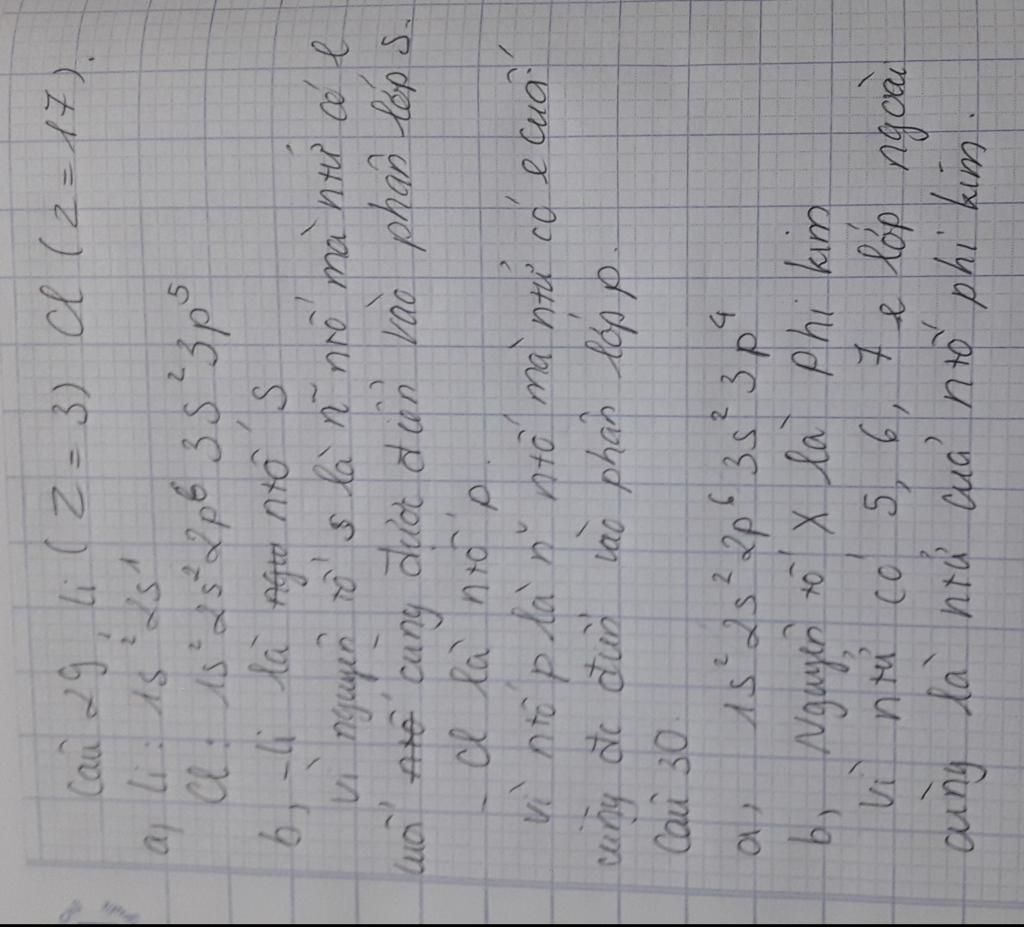 Câu 29 Li (Z = 3) Cl (Z = 17).
a, Li: 1s² 2s¹
Cl: 1s² 2s² 2p⁶ 3s² 3p⁵
b, - Li là ntố s
Vì nguyên tố s là ñ ntố mà ntử có e
cuối cùng được điền vào phân lớp s.
- Cl là ntố p.
Vì ntố p là ñ ntố mà ntử có e cuối
cùng đc điền vào phân lớp p.
Câu 30
a, 1s² 2s² 2p⁶ 3s² 3p⁴
b, Nguyên tố X là phi kim
Vì ntử có 5, 6, 7 e lớp ngoài
cùng là ntử của ntố phi kim.